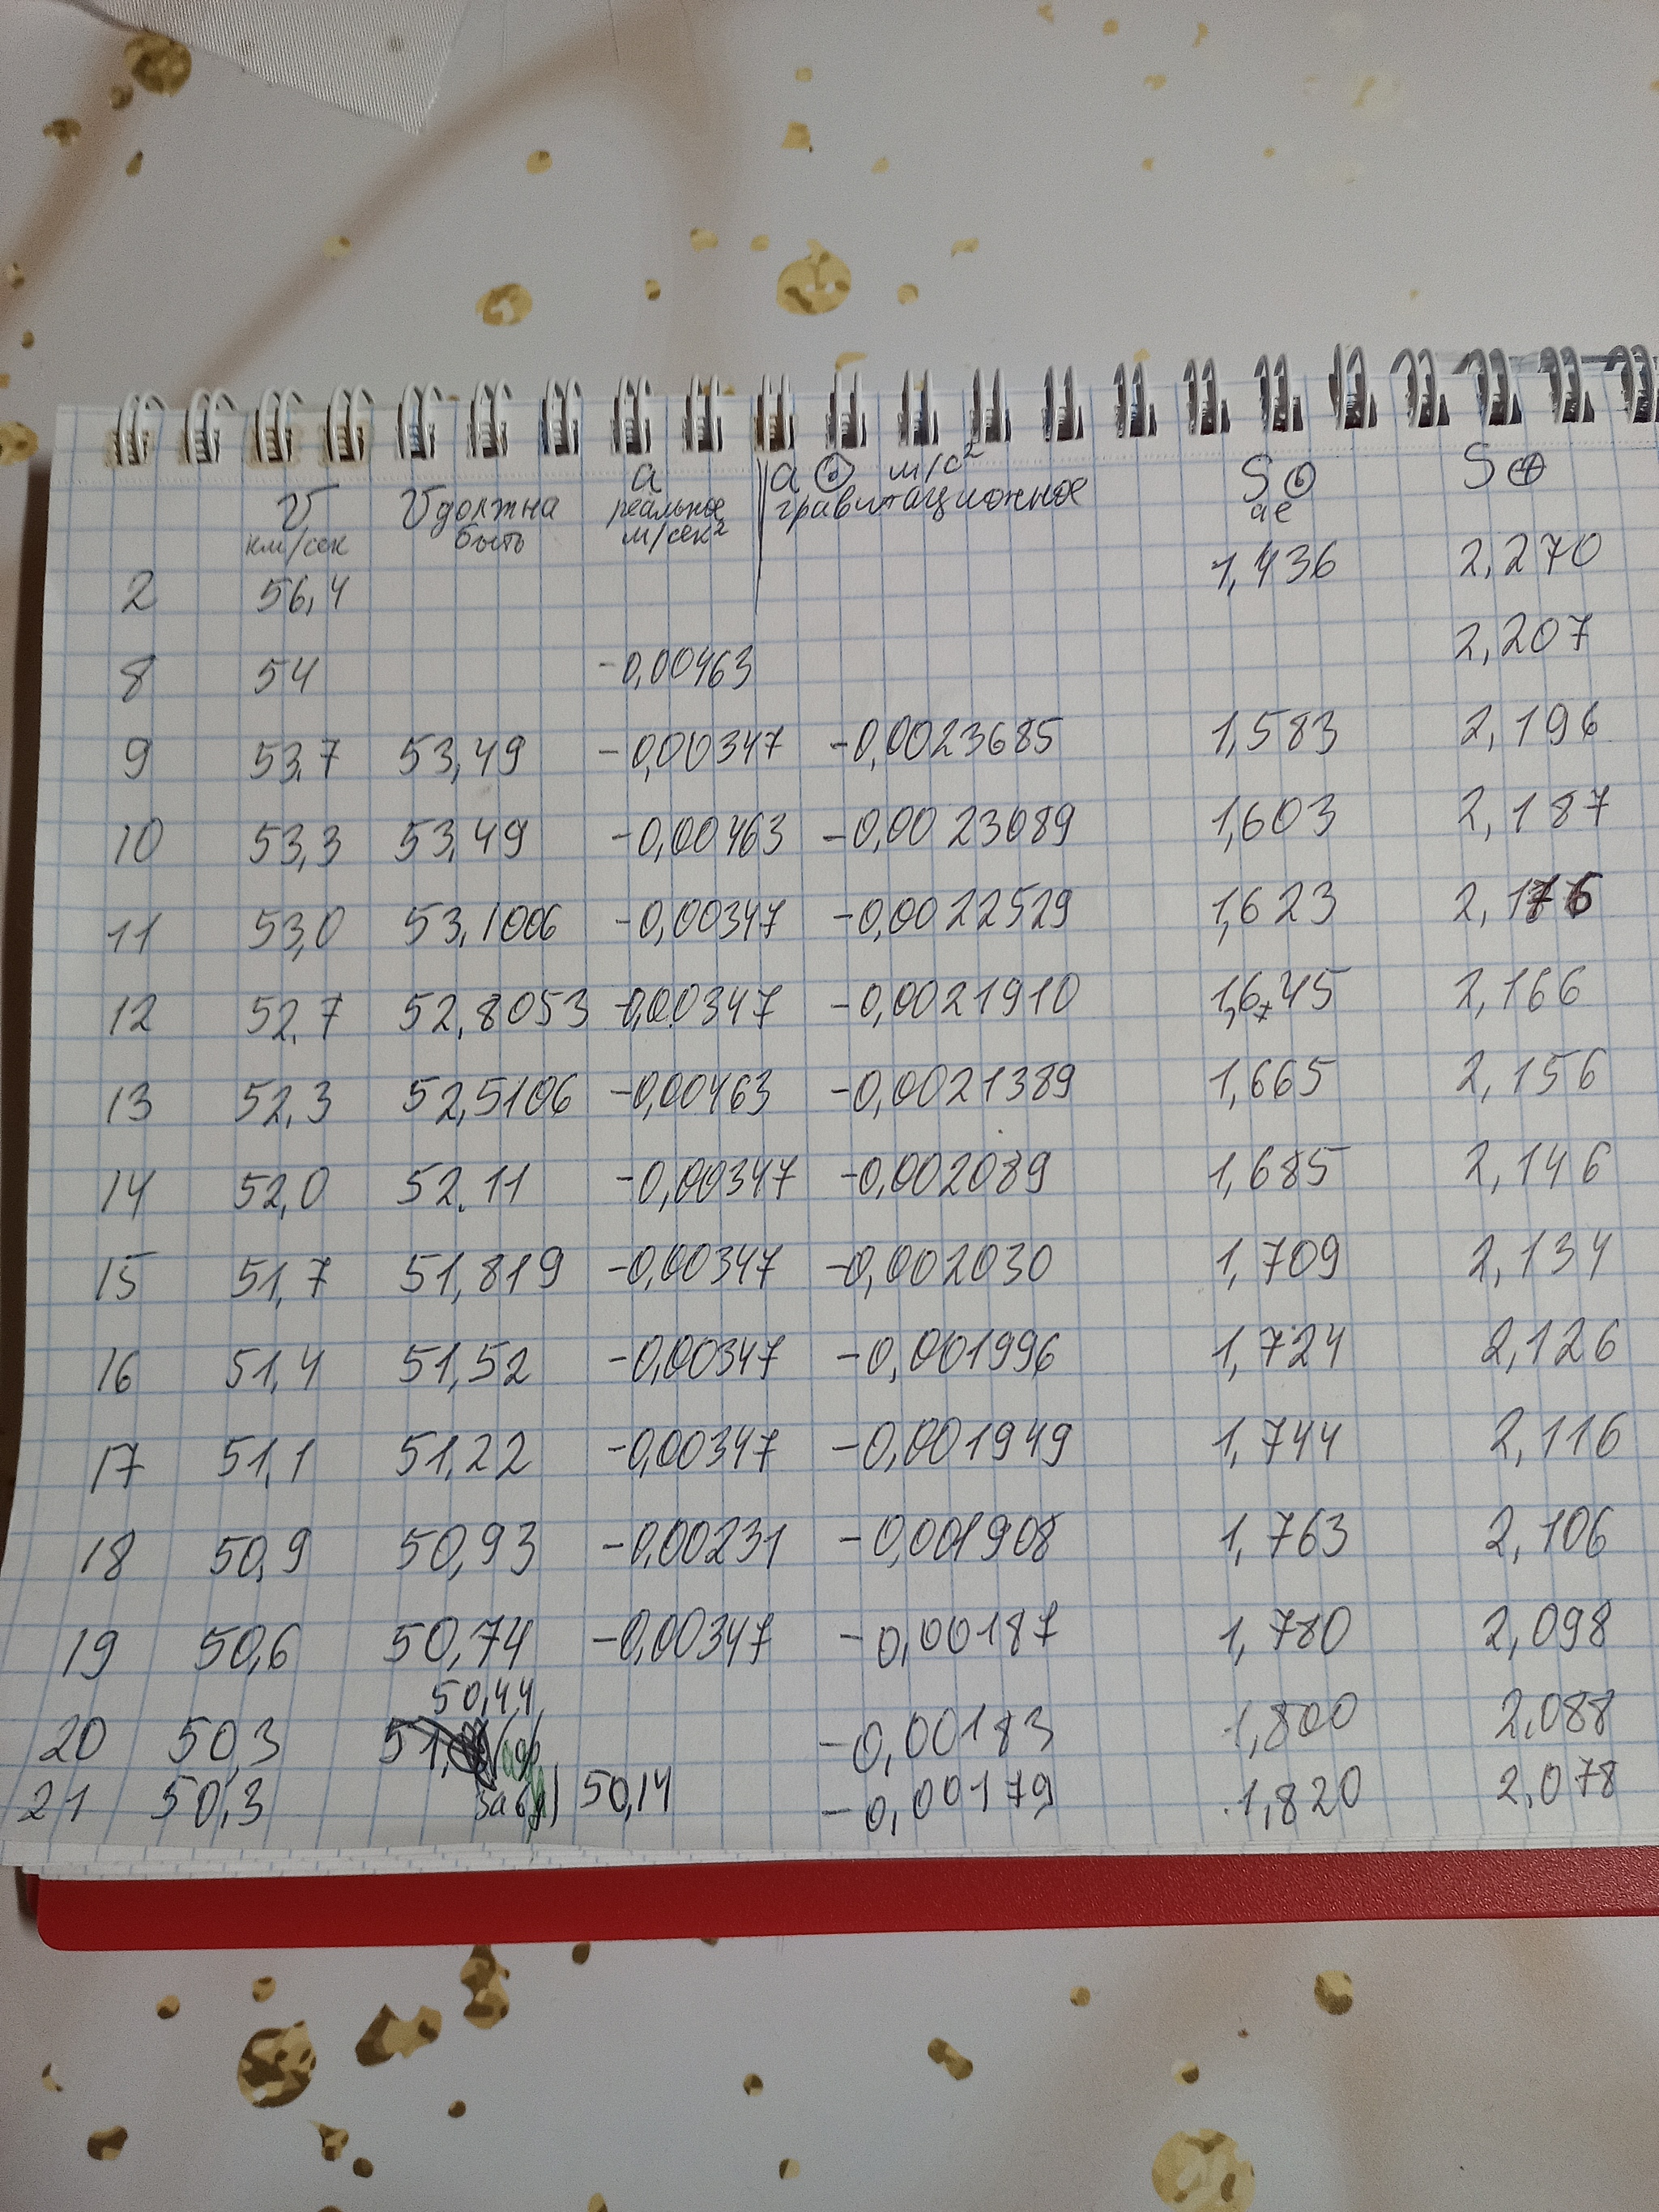 V Vдолжна a a ⊙ м/с² S ⊙ S ⊕
км/сек быть реальное гравитационное ае
м/сек²
2 56,4 1,436 2,270
8 54 -0,00463 2,207
9 53,7 53,49 -0,00347 -0,0023685 1,583 2,196
10 53,3 53,49 -0,00463 -0,0023089 1,603 2,187
11 53,0 53,1006 -0,00347 -0,0022529 1,623 2,176
12 52,7 52,8053 -0,00347 -0,0021910 1,645 2,166
13 52,3 52,5106 -0,00463 -0,0021389 1,665 2,156
14 52,0 52,11 -0,00347 -0,002089 1,685 2,146
15 51,7 51,819 -0,00347 -0,002030 1,709 2,134
16 51,4 51,52 -0,00347 -0,001996 1,724 2,126
17 51,1 51,22 -0,00347 -0,001949 1,744 2,116
18 50,9 50,93 -0,00231 -0,001908 1,763 2,106
19 50,6 50,74 -0,00347 -0,00187 1,780 2,098
50,44
20 50,3 -0,00183 1,800 2,088
21 50,3 50,14 -0,00179 1,820 2,078